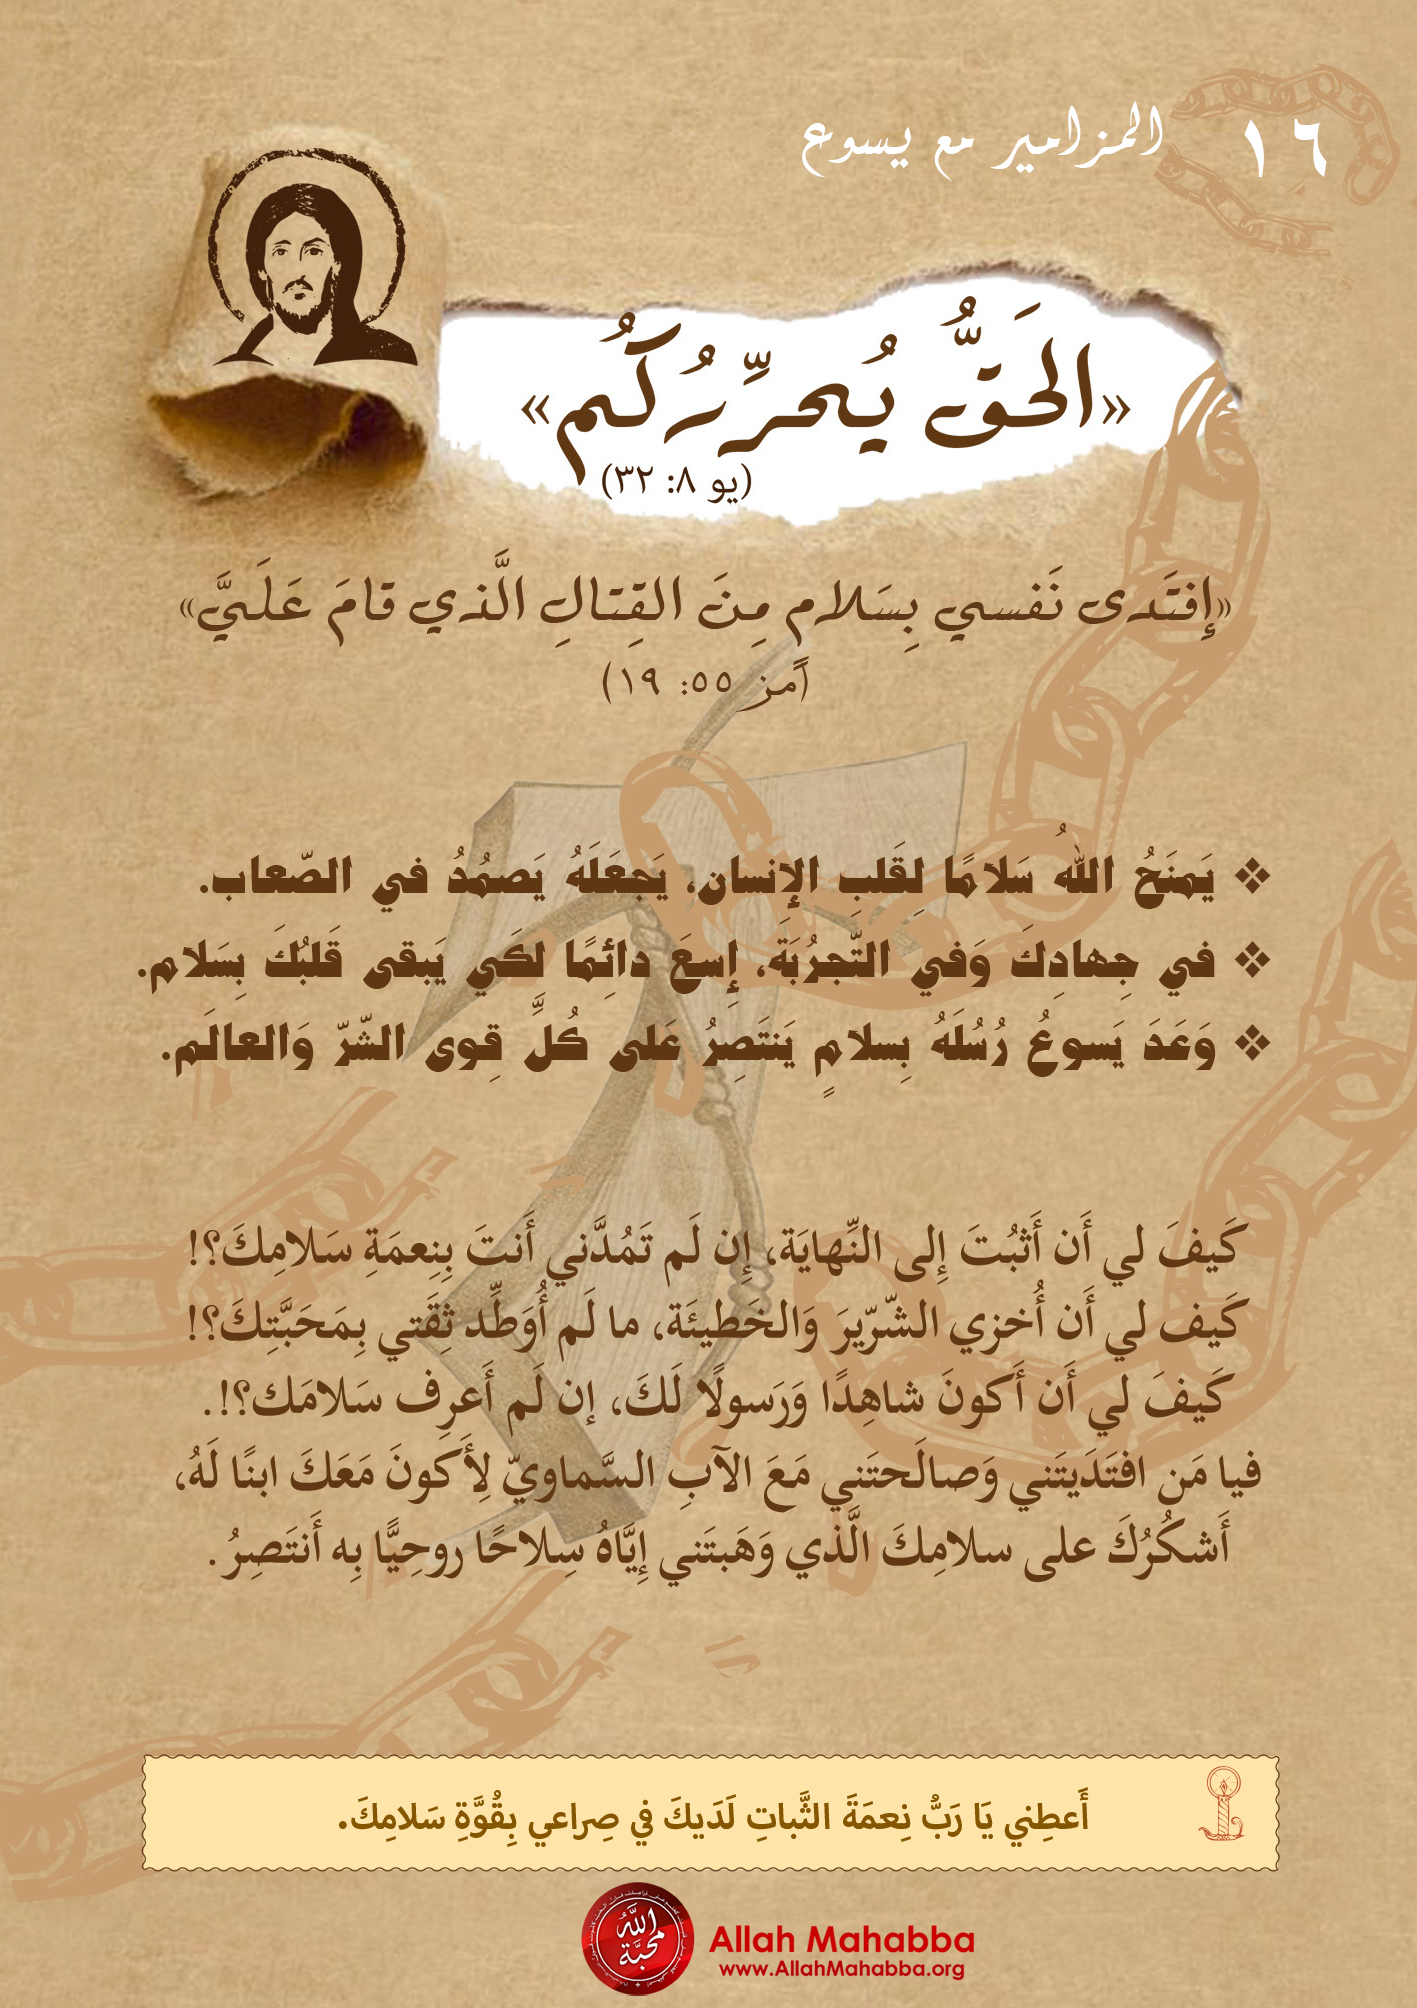 ١٦ المزامير مع يسوع
«الحَقُّ يُحرِّرُكُم»
(يو ٨: ٣٢)
«إفتَدى نَفسي بِسَلامٍ مِنَ القِتالِ الَّذي قامَ عَلَيَّ»
(مز ٥٥: ١٩)
❖ يَمنَحُ اللهُ سَلامًا لِقَلبِ الإنسان، يَجعَلَهُ يَصمُدُ في الصّعاب.
❖ في جِهادِكَ وَفي التّجرُبَةَ، إسعَ دائِمًا لِكَي يَبقى قَلبُكَ بِسَلام.
❖ وَعَدَ يَسوعُ رُسُلَهُ بِسلامٍ يَنتَصِرُ عَلى كُلِّ قِوى الشّرّ وَالعالَم.
كَيفَ لي أَن أَثبُتَ إِلى النِّهايَة، إِن لَم تَمُدَّني أَنتَ بِنِعمَةِ سَلامِكَ؟!
كَيف لي أَن أُخزي الشّرّيرَ وَالخَطيئَة، ما لَم أُوَطِّد ثِقَتي بِمَحَبَّتِكَ؟!
كَيفَ لي أَن أَكونَ شاهِدًا وَرَسولًا لَكَ، إن لَم أَعرِف سَلامَك؟!.
فيا مَن افتَدَيتَني وَصالَحتَني مَعَ الآبِ السَّماويّ لِأَكونَ مَعَكَ ابنًا لَهُ،
أَشكُرُكَ على سلامِكَ الَّذي وَهَبتَني إِيَّاهُ سِلاحًا روحِيًّا بِه أَنتَصِرُ.
أَعطِني يَا رَبُّ نِعمَةَ الثَّباتِ لَدَيكَ في صِراعي بِقُوَّةِ سَلامِكَ.
الله محبة
Allah Mahabba
www.AllahMahabba.org